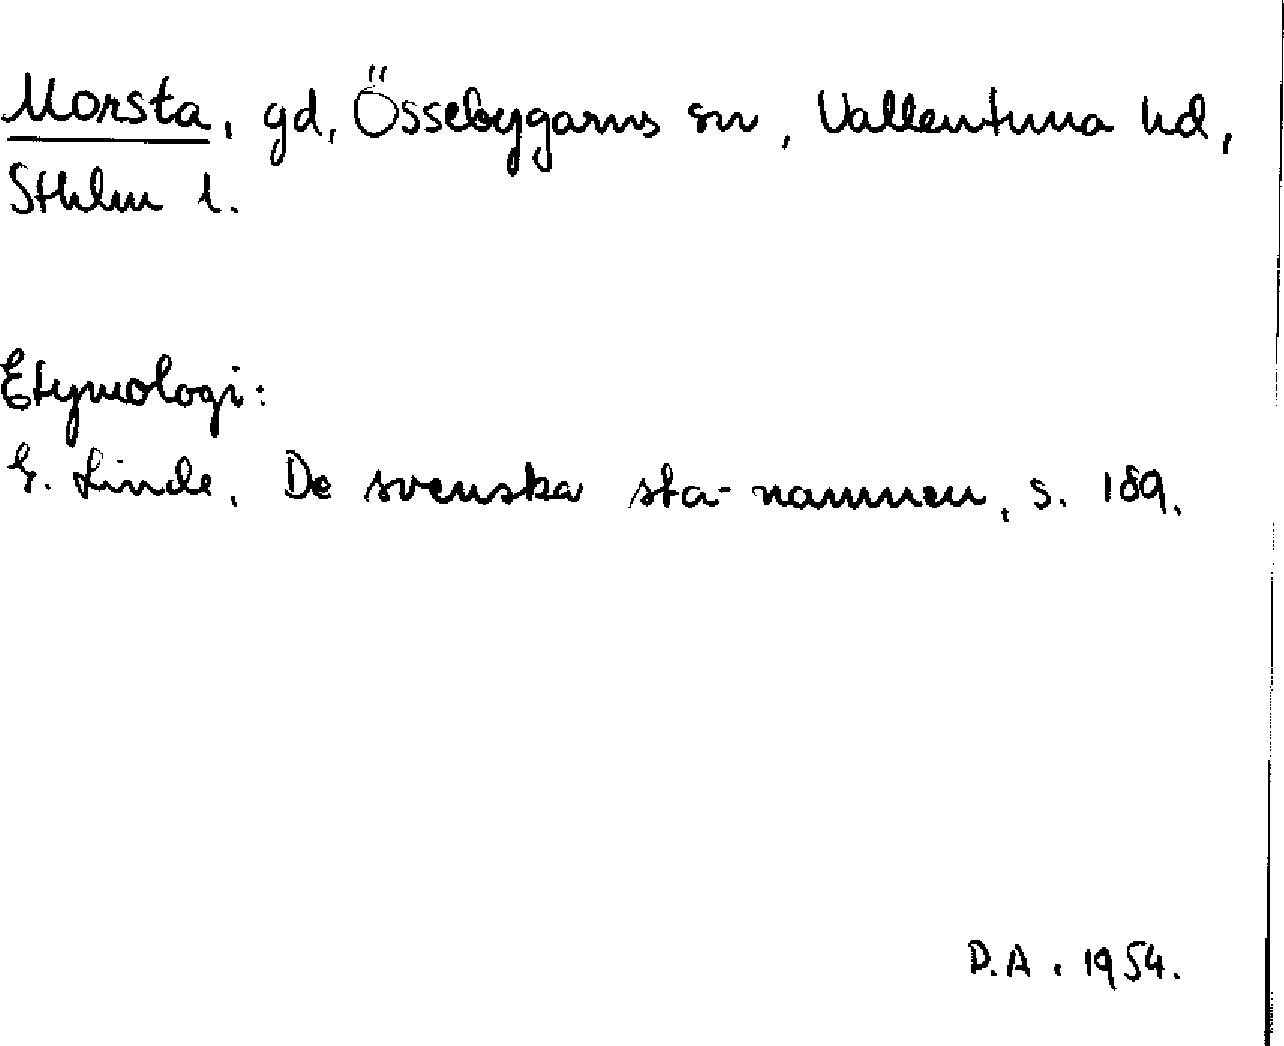 Morsta, gd, Össebygarns sn, Vallentuna hd,
Sthlm l.
Etymologi:
G. Linde, De svenska sta-namnen, s. 189.
D.A. 1954.